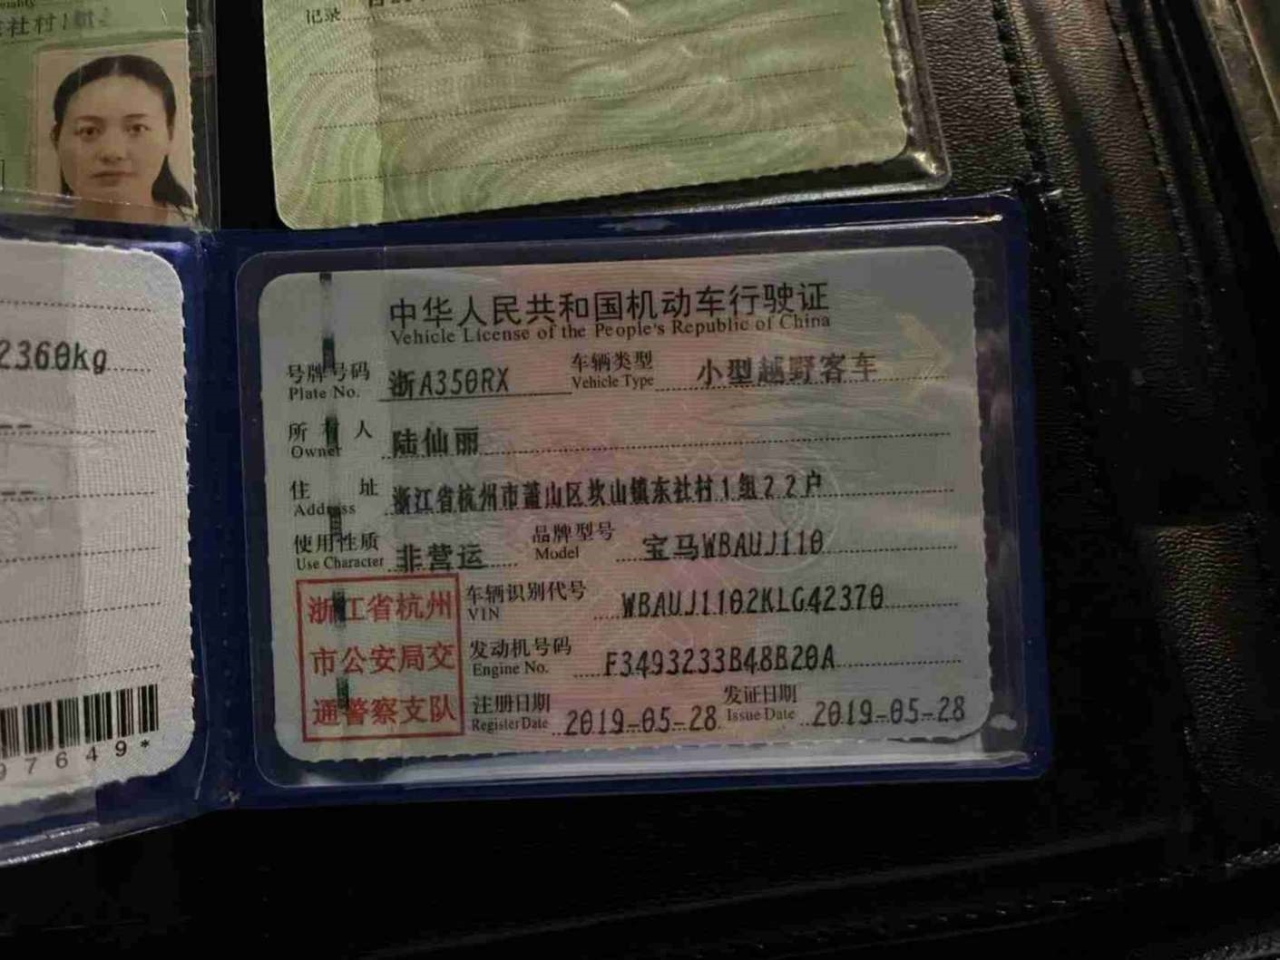 记录
社村1组2
2360kg
97649*
中华人民共和国机动车行驶证
Vehicle License of the People's Republic of China
号牌号码 浙A350RX 车辆类型 小型越野客车
Plate No. Vehicle Type
所有人 陆仙丽
Owner
住址 浙江省杭州市萧山区坎山镇东社村1组22户
Address
使用性质 非营运 品牌型号 宝马WBAUJ110
Use Character Model
浙江省杭州 车辆识别代号 WBAUJ1102KLG42370
VIN
市公安局交 发动机号码 F3493233B48B20A
Engine No.
通警察支队 注册日期 2019-05-28 发证日期 2019-05-28
Register Date Issue Date